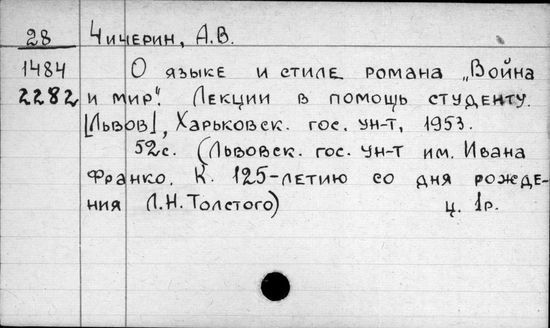 28 Чичерин, А.В.
1484 О языке и стиле романа „Война
2282 и мир". Лекции в помощь студенту.
[Львов], Харьковск. гос. ун-т, 1953.
52с. (Львовск. гос. ун-т им. Ивана
Франко. К. 125-летию со дня рожде-
ния Л.Н. Толстого) ц. 1р.